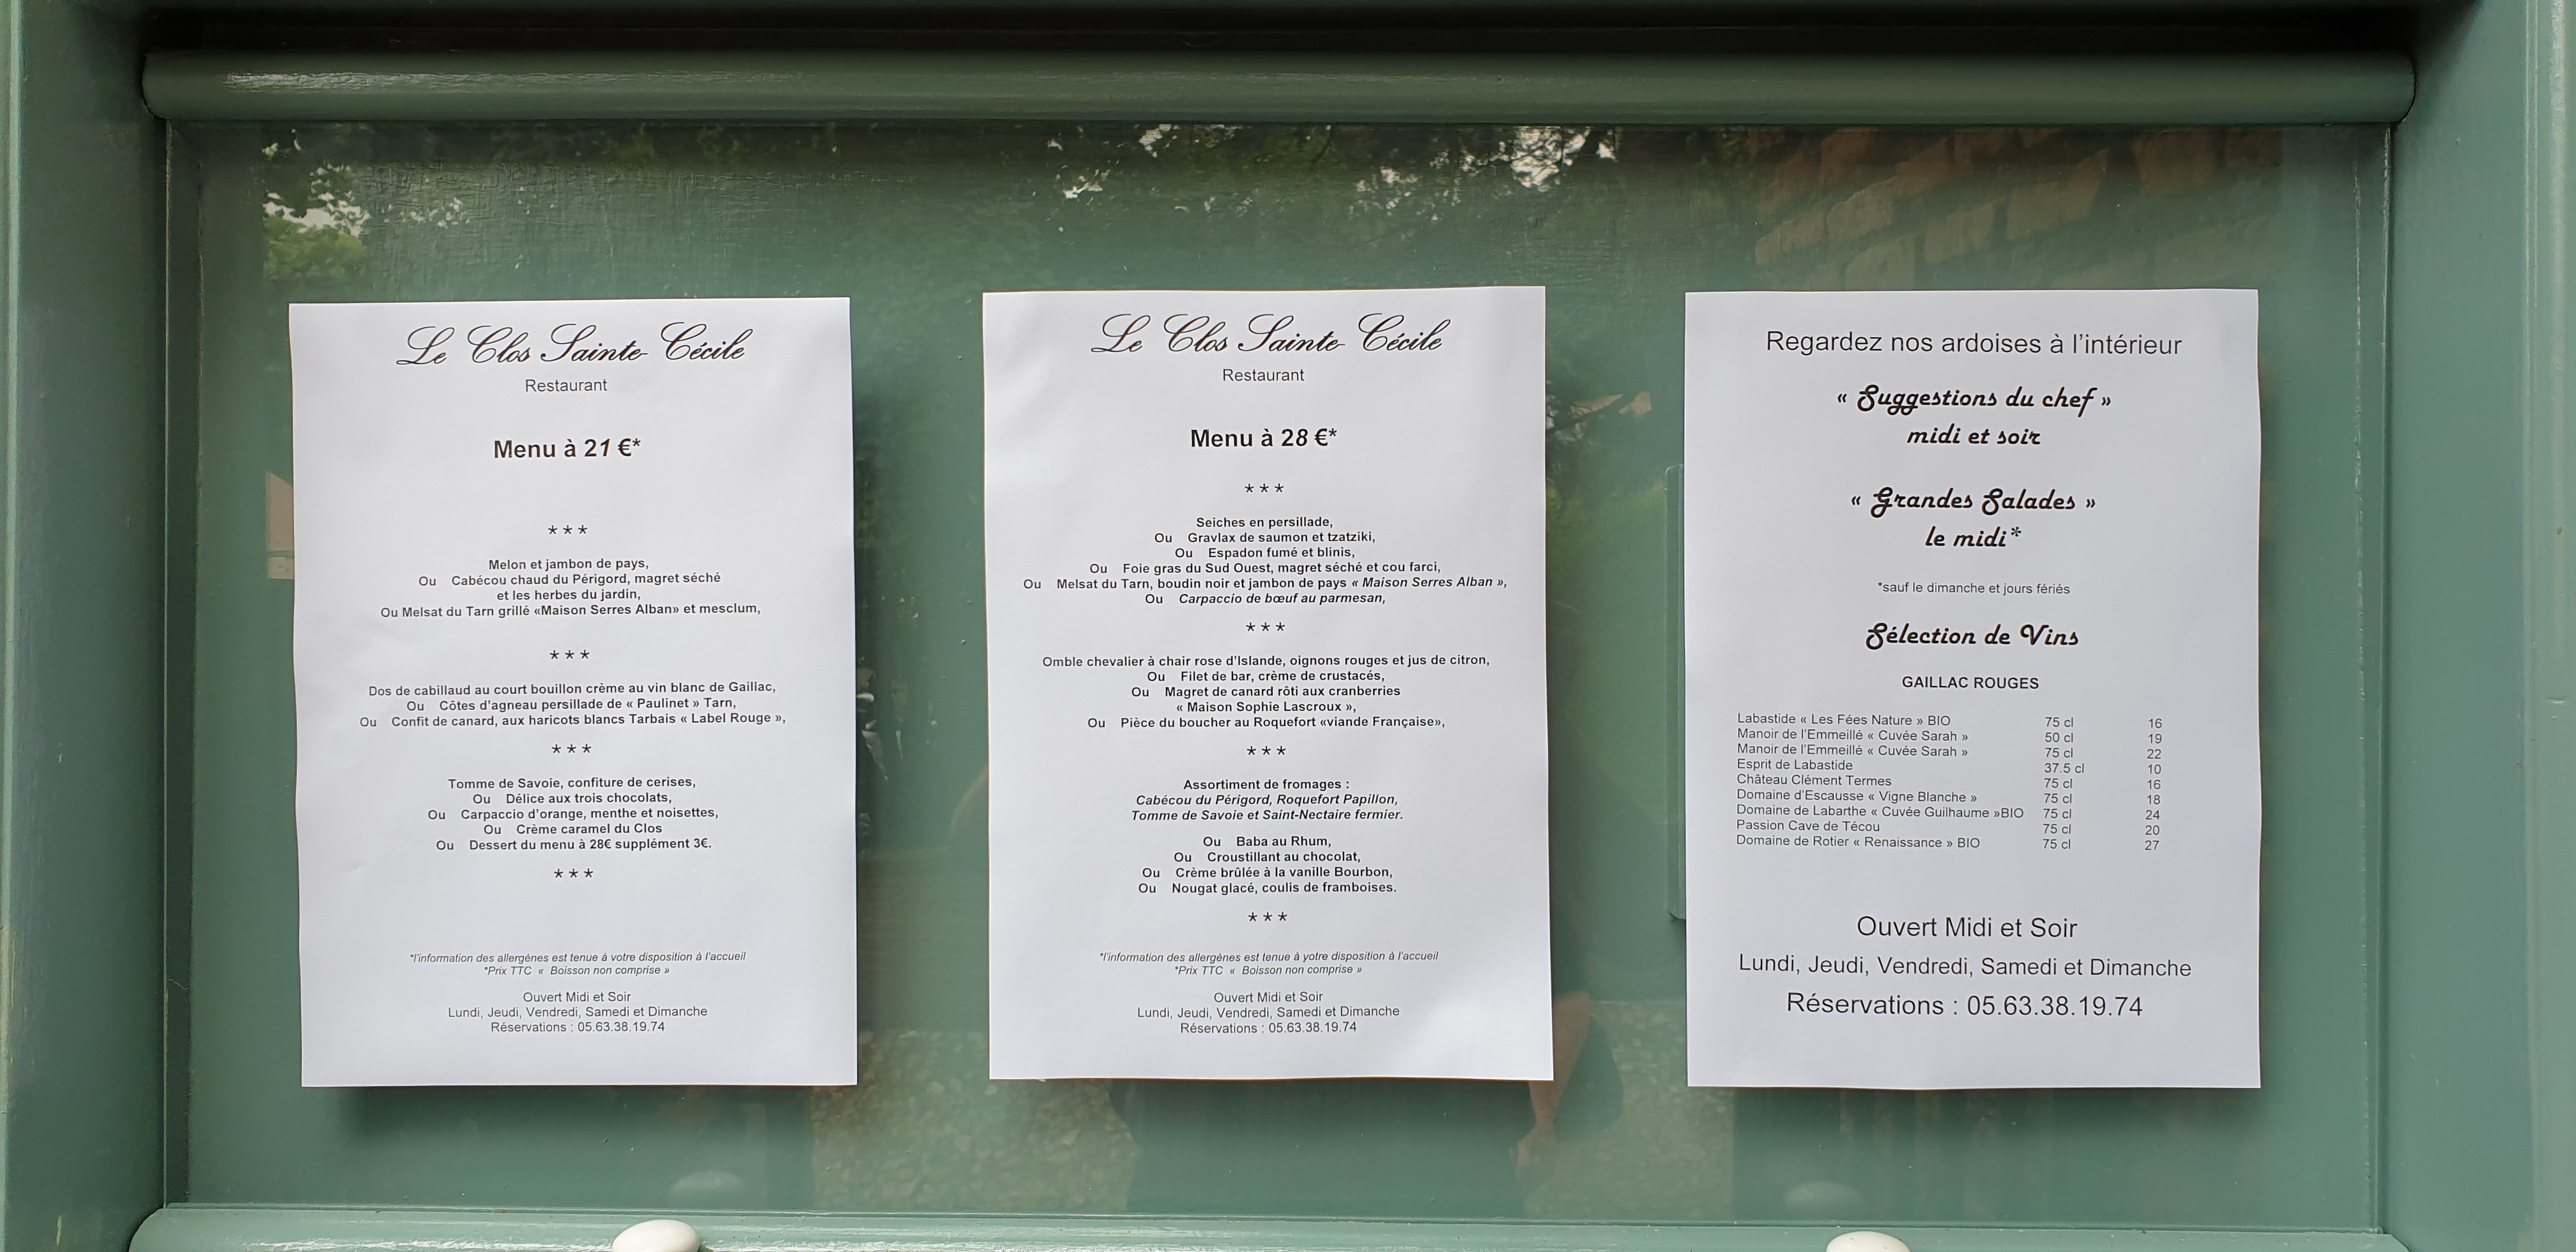 Le Clos Sainte-Cécile
Restaurant
Menu à 21 €*
***
Melon et jambon de pays,
Ou Cabécou chaud du Périgord, magret séché
et les herbes du jardin,
Ou Melsat du Tarn grillé «Maison Serres Alban» et mesclum,
***
Dos de cabillaud au court bouillon crème au vin blanc de Gaillac,
Ou Côtes d'agneau persillade de « Paulinet » Tarn,
Ou Confit de canard, aux haricots blancs Tarbais « Label Rouge »,
***
Tomme de Savoie, confiture de cerises,
Ou Délice aux trois chocolats,
Ou Carpaccio d'orange, menthe et noisettes,
Ou Crème caramel du Clos
Ou Dessert du menu à 28€ supplément 3€.
***
*l'information des allergènes est tenue à votre disposition à l'accueil
*Prix TTC « Boisson non comprise »
Ouvert Midi et Soir
Lundi, Jeudi, Vendredi, Samedi et Dimanche
Réservations : 05.63.38.19.74
Le Clos Sainte-Cécile
Restaurant
Menu à 28 €*
***
Seiches en persillade,
Ou Gravlax de saumon et tzatziki,
Ou Espadon fumé et blinis,
Ou Foie gras du Sud Ouest, magret séché et cou farci,
Ou Melsat du Tarn, boudin noir et jambon de pays « Maison Serres Alban »,
Ou Carpaccio de bœuf au parmesan,
***
Omble chevalier à chair rose d'Islande, oignons rouges et jus de citron,
Ou Filet de bar, crème de crustacés,
Ou Magret de canard rôti aux cranberries
« Maison Sophie Lascroux »,
Ou Pièce du boucher au Roquefort «viande Française»,
***
Assortiment de fromages :
Cabécou du Périgord, Roquefort Papillon,
Tomme de Savoie et Saint-Nectaire fermier.
Ou Baba au Rhum,
Ou Croustillant au chocolat,
Ou Crème brûlée à la vanille Bourbon,
Ou Nougat glacé, coulis de framboises.
***
*l'information des allergènes est tenue à votre disposition à l'accueil
*Prix TTC « Boisson non comprise »
Ouvert Midi et Soir
Lundi, Jeudi, Vendredi, Samedi et Dimanche
Réservations : 05.63.38.19.74
Regardez nos ardoises à l'intérieur
« Suggestions du chef »
midi et soir
« Grandes Salades »
le midi*
*sauf le dimanche et jours fériés
Sélection de Vins
GAILLAC ROUGES
Labastide « Les Fées Nature » BIO 75 cl 16
Manoir de l'Emmeillé « Cuvée Sarah » 50 cl 19
Manoir de l'Emmeillé « Cuvée Sarah » 75 cl 22
Esprit de Labastide 37.5 cl 10
Château Clément Termes 75 cl 16
Domaine d'Escausse « Vigne Blanche » 75 cl 18
Domaine de Labarthe « Cuvée Guilhaume »BIO 75 cl 24
Passion Cave de Técou 75 cl 20
Domaine de Rotier « Renaissance » BIO 75 cl 27
Ouvert Midi et Soir
Lundi, Jeudi, Vendredi, Samedi et Dimanche
Réservations : 05.63.38.19.74